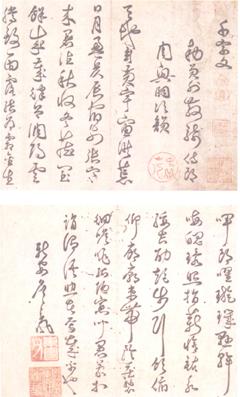 千字文
勅員外散騎侍郎
周興嗣次韻
天地玄黃宇宙洪荒
日月盈昃辰宿列張寒
來暑往秋收冬藏閏
餘成歲律呂調陽雲
騰致雨露結為霜金生
暉朗曜璇璣懸斡
晦魄環照指薪修祜永
綏吉劭矩步引領俯
仰廊廟束帶矜莊徘
徊瞻眺孤陋寡聞愚蒙
等誚謂語助者焉哉乎也